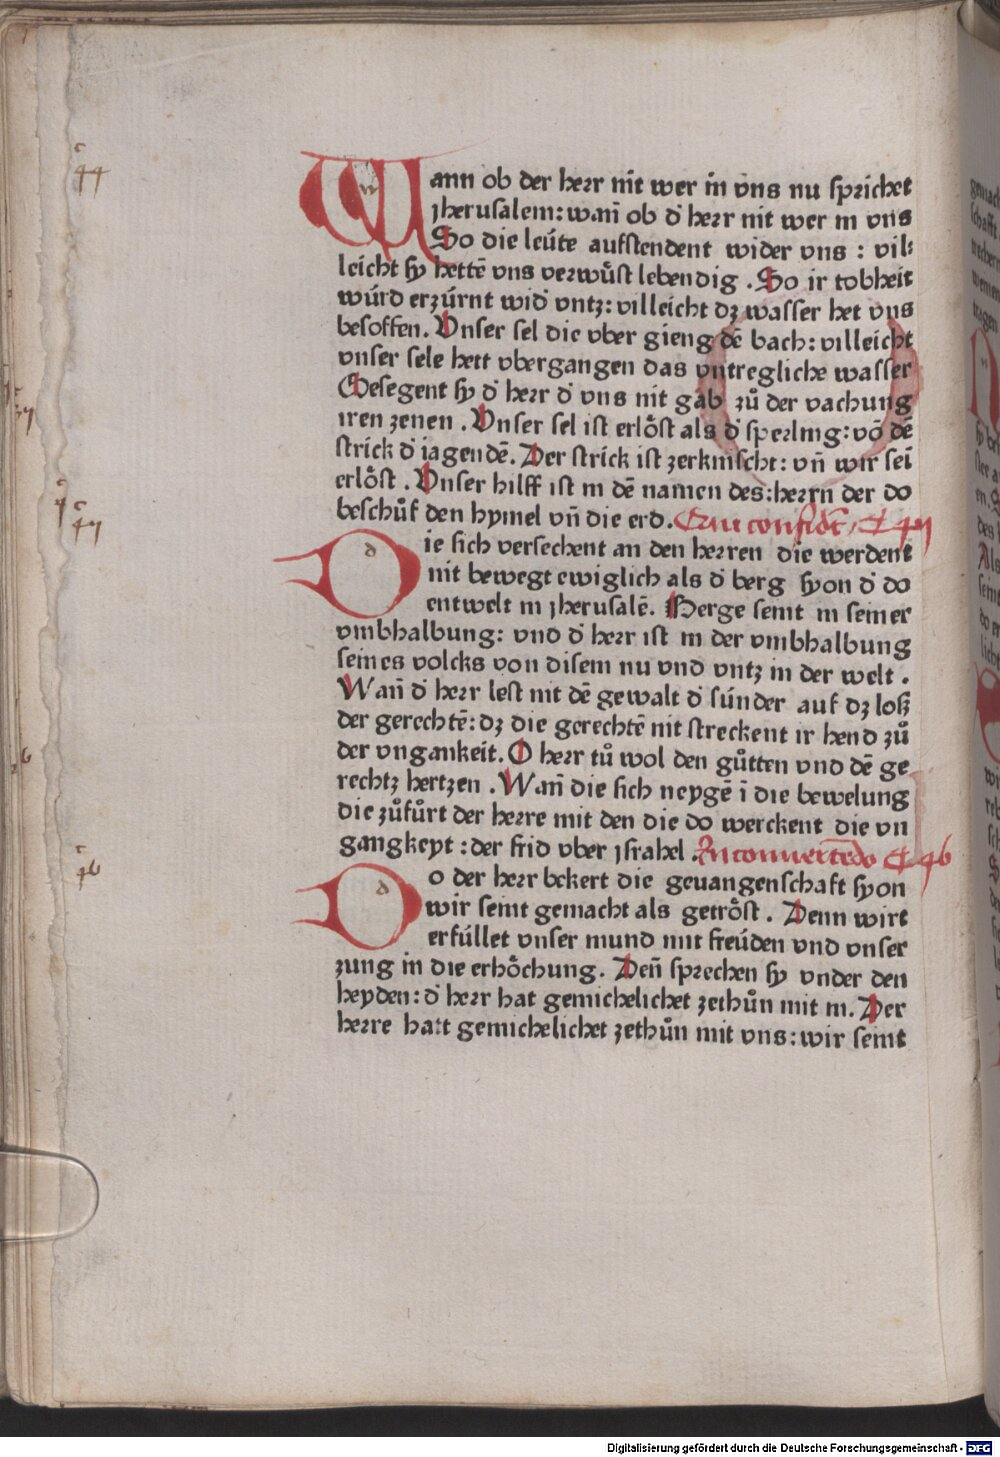 Wann ob der herr nit wer in vns nu sprichet
jherusalem: wañ ob d' herr nit wer in vns
So die leúte aufstendent wider vns : vil:
leicht sy hettē vns verwůst lebendig . So ir tobheit
wúrd erzúrnt wid' vntz: villeicht dz wasser het vns
besoffen. Vnser sel die vber gieng dē bach: villeicht
vnser sele hett vbergangen das vntregliche wasser
Gesegent sy d' herr d' vns nit gab zů der vachung
iren zenen . Vnser sel ist erlöst als d' sperling: vō dē
strick d' iagendē. Der strick ist zerknischt: vñ wir sei
erlöst . Vnser hilff ist in dē namen des: herrn der do
beschůf den hymel vñ die erd. Qui confidūt
Die sich versechent an den herren die werdent
nit bewegt ewiglich als d' berg syon d' do
entwelt in jherusalē. Berge seint in seiner
vmbhalbung: vnd d' herr ist in der vmbhalbung
seines volcks von disem nu vnd vntz in der welt .
Wañ d' herr lest nit dē gewalt d' súnder auf dz loß
der gerechtē: dz die gerechtē nit streckent ir hend zů
der vngankeit. O herr tů wol den gůtten vnd dē ge
rechtz hertzen . Wañ die sich neygē ī die bewelung
die zůfůrt der herre mit den die do werckent die vn
gangkeyt : der frid vber jsrahel . In conuertēdo
Do der herr bekert die geuangenschaft syon
wir seint gemacht als getröst . Denn wirt
erfúllet vnser mund mit freúden vnd vnser
zung in die erhöchung. Deñ sprechen sy vnder den
heyden: d' herr hat gemichelichet zethůn mit in. Der
herre hatt gemichelichet zethůn mit vns: wir seint
Digitalisierung gefördert durch die Deutsche Forschungsgemeinschaft - DFG